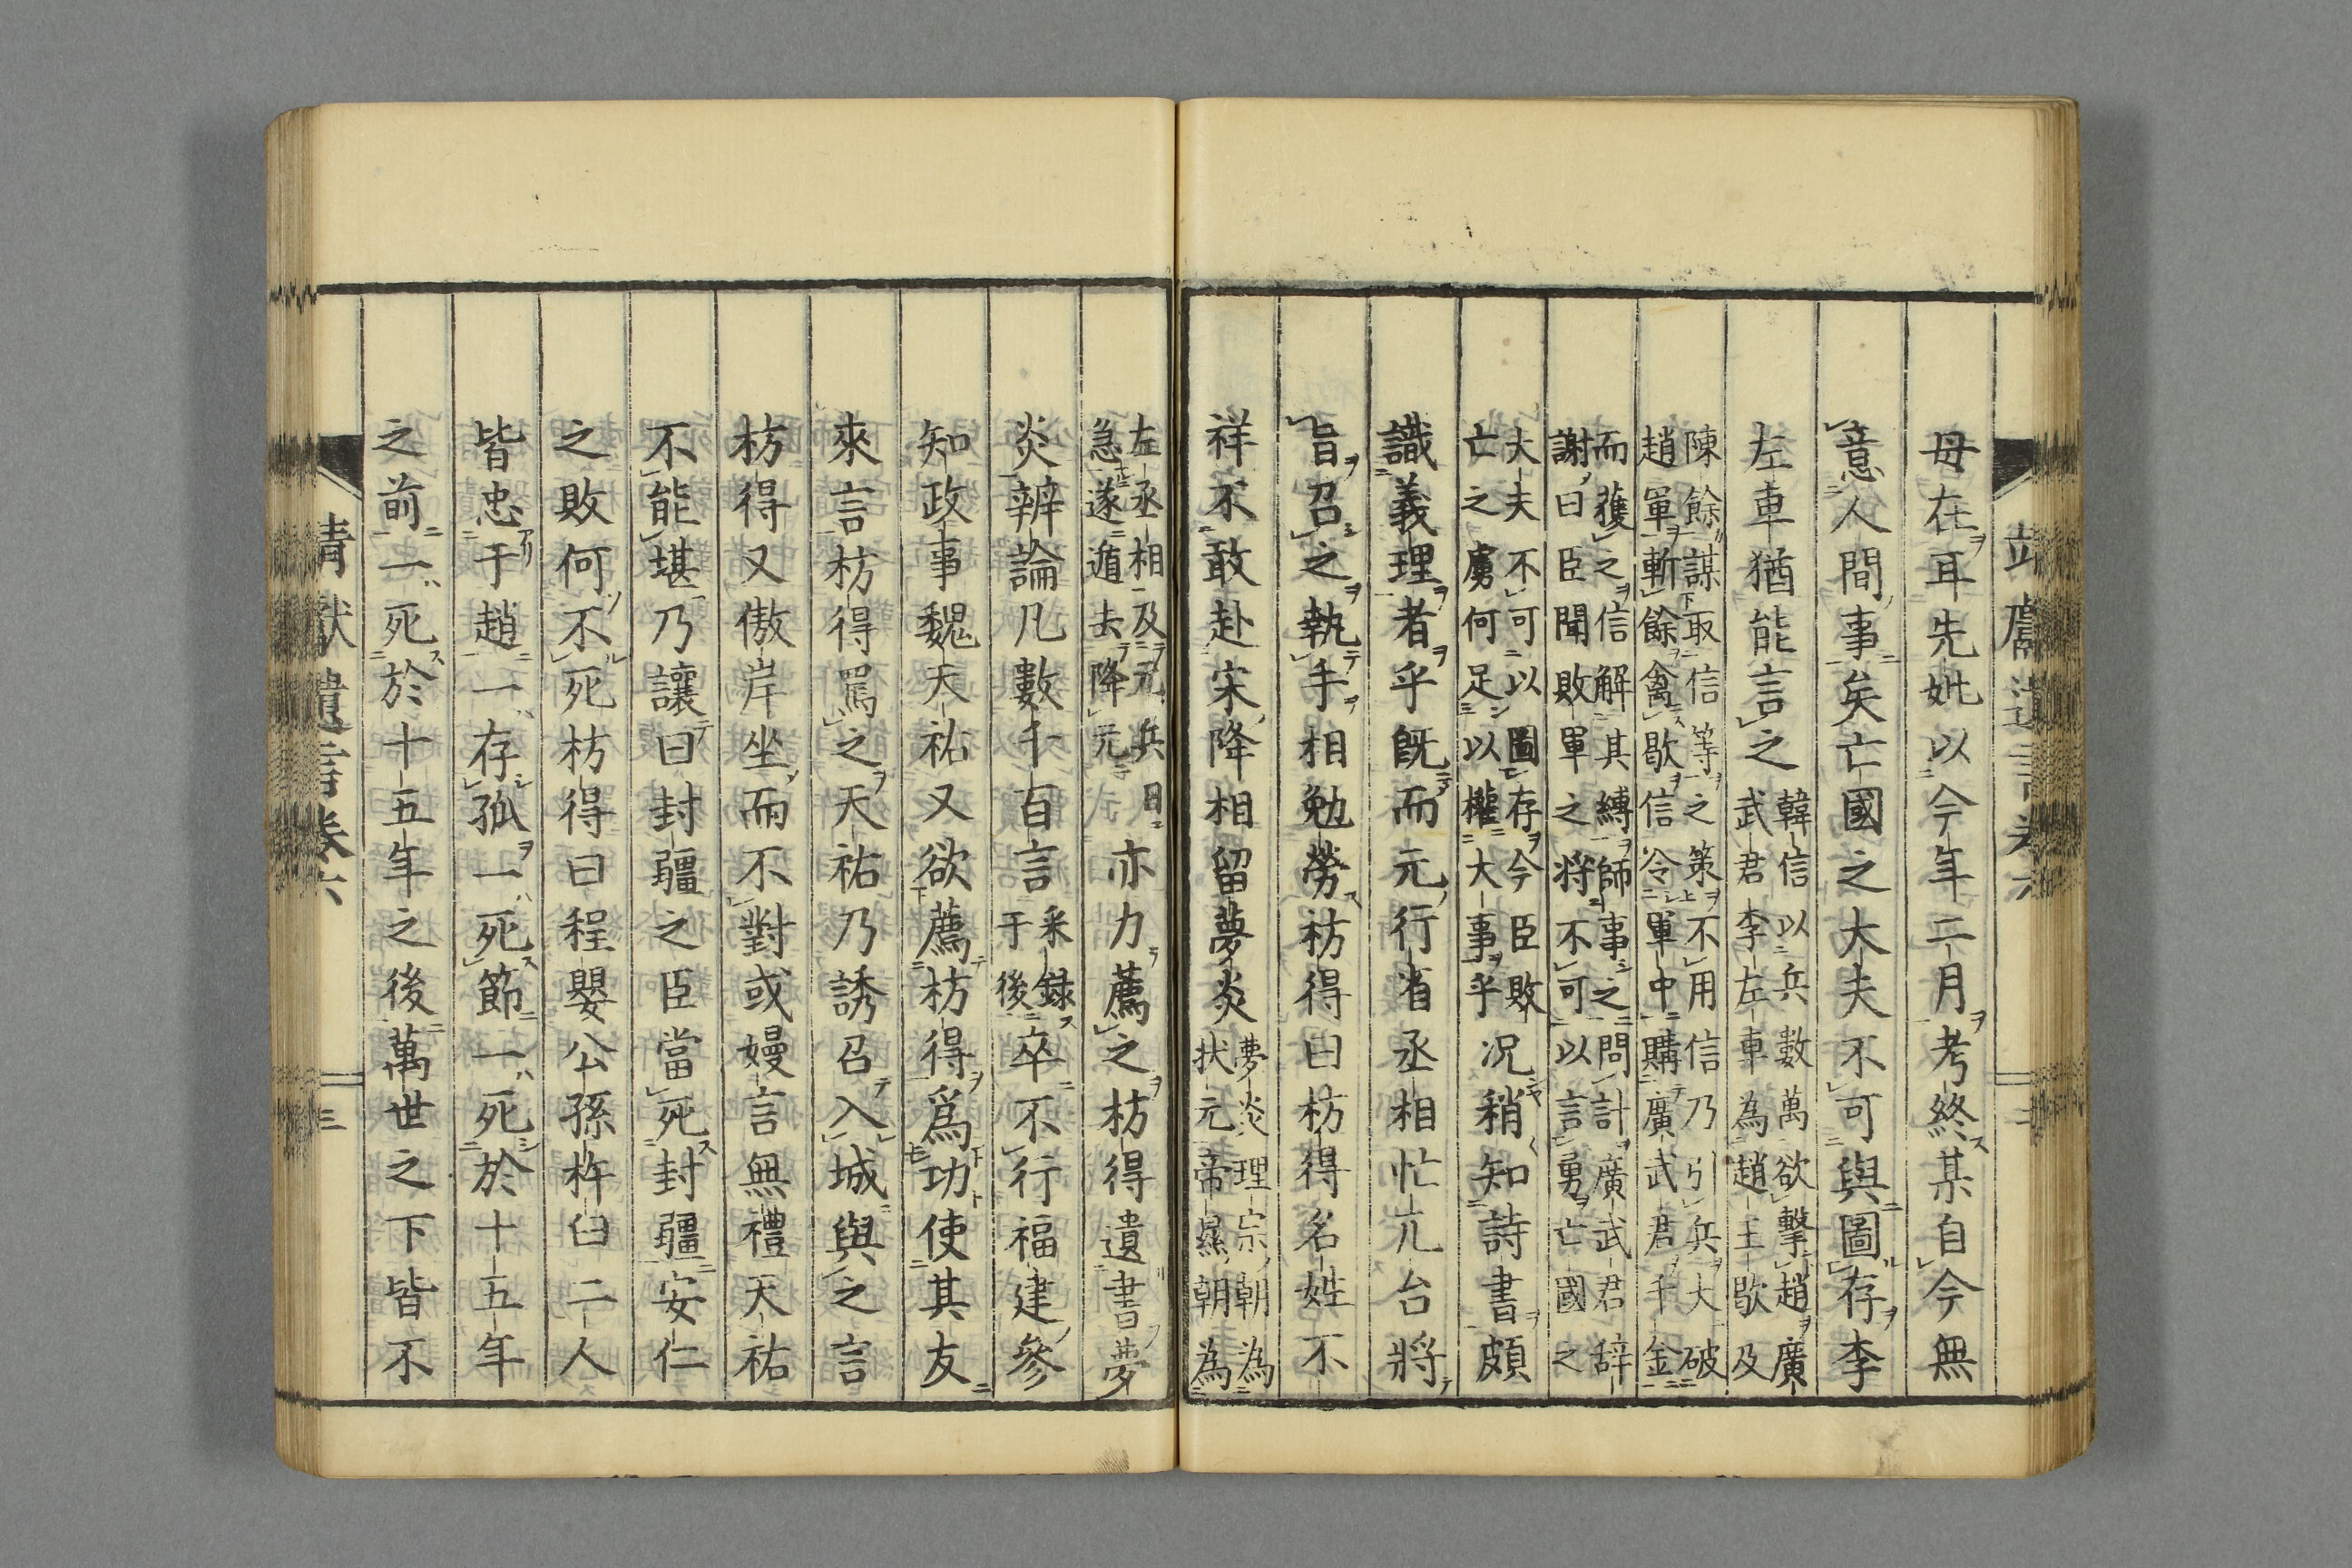 母在耳先妣以今年二月考終某自今無
意人間事矣亡國之大夫不可與圖存李
左車猶能言之韓信以兵數萬欲擊趙廣
武君李左車為趙王歇及
陳餘謀取信等之策不用信乃引兵大破
趙軍斬餘禽歇信令軍中購廣武君千金
而獲之信解其縛師事之問計廣武君辞
謝曰臣聞敗軍之将不可以言勇亡國之
大夫不可以圖存今臣敗
亡之虜何足以權大事乎況稍知詩書頗
識義理者乎既而元行省丞相忙兀台將
旨召之執手相勉勞枋得曰枋得名姓不
祥不敢赴宋降相留夢炎夢炎理宗朝為
状元帝㬎朝為
左丞相及元兵日
急遂遁去降元亦力薦之枋得遺書夢
炎辨論凡數千百言采録
于後卒不行福建參
知政事魏天祐又欲薦枋得爲功使其友
來言枋得罵之天祐乃誘召入城與之言
枋得又傲岸坐而不對或嫚言無禮天祐
不能堪乃讓曰封疆之臣當死封疆安仁
之敗何不死枋得曰程嬰公孫杵臼二人
皆忠于趙一存孤一死節一死於十五年
之前一死於十五年之後萬世之下皆不
靖獻遺言卷六
三